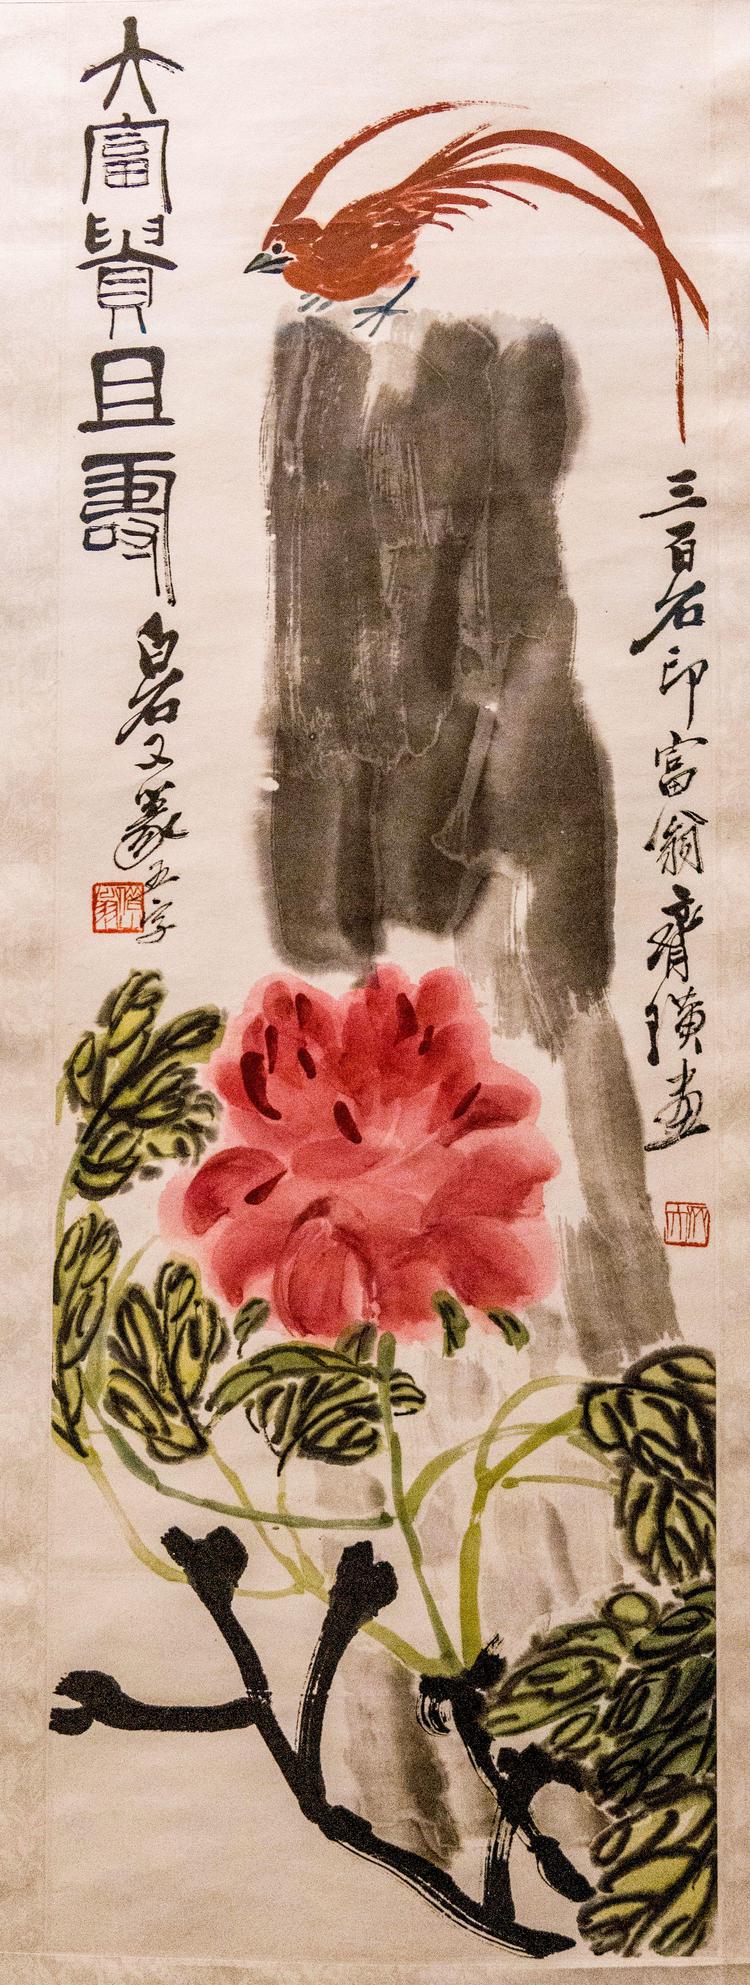 三百石印富翁齊璜畫
大富貴且壽
白石又篆五字